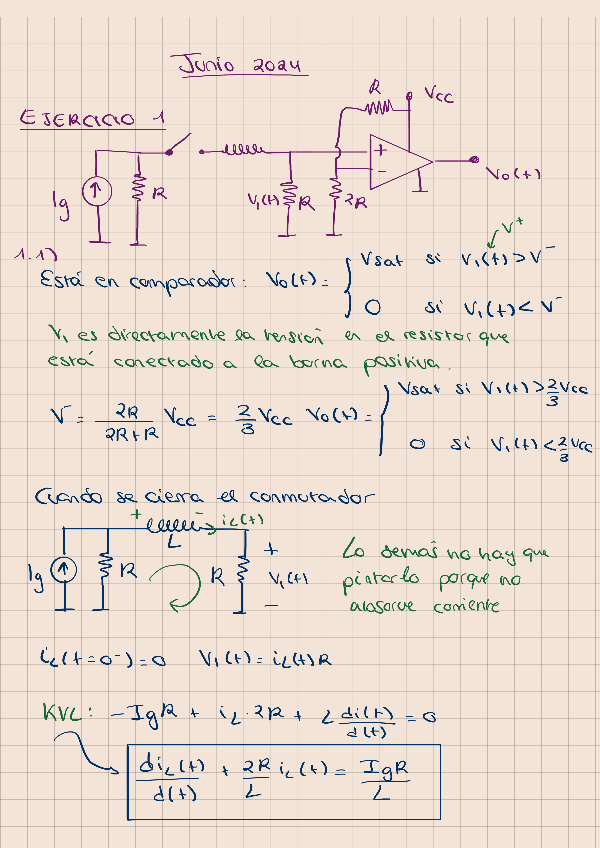 Junio 2024
EJERCICIO 1
R
Vcc
+
-
Vo(t)
Ig
R
V₁(t) R
2R
1.1)
V⁺
Está en comparador: Vo(t) = { Vsat si V₁(t) > V⁻
0 si V₁(t) < V⁻
V₁ es directamente la tensión en el resistor que
está conectado a la borna positiva.
V⁻ = 2R/(2R+R) Vcc = 2/3 Vcc Vo(t) = { Vsat si V₁(t) > 2/3 Vcc
0 si V₁(t) < 2/3 Vcc
Cuando se cierra el conmutador
+ - iL(t)
L
Ig
R
R
+
V₁(t)
-
Lo demás no hay que
pintarlo porque no
absorve corriente
iL(t=0⁻)=0 V₁(t) = iL(t)R
KVL: -IgR + iL·2R + L di(t)/d(t) = 0
diL(t)/d(t) + 2R/L iL(t) = IgR/L